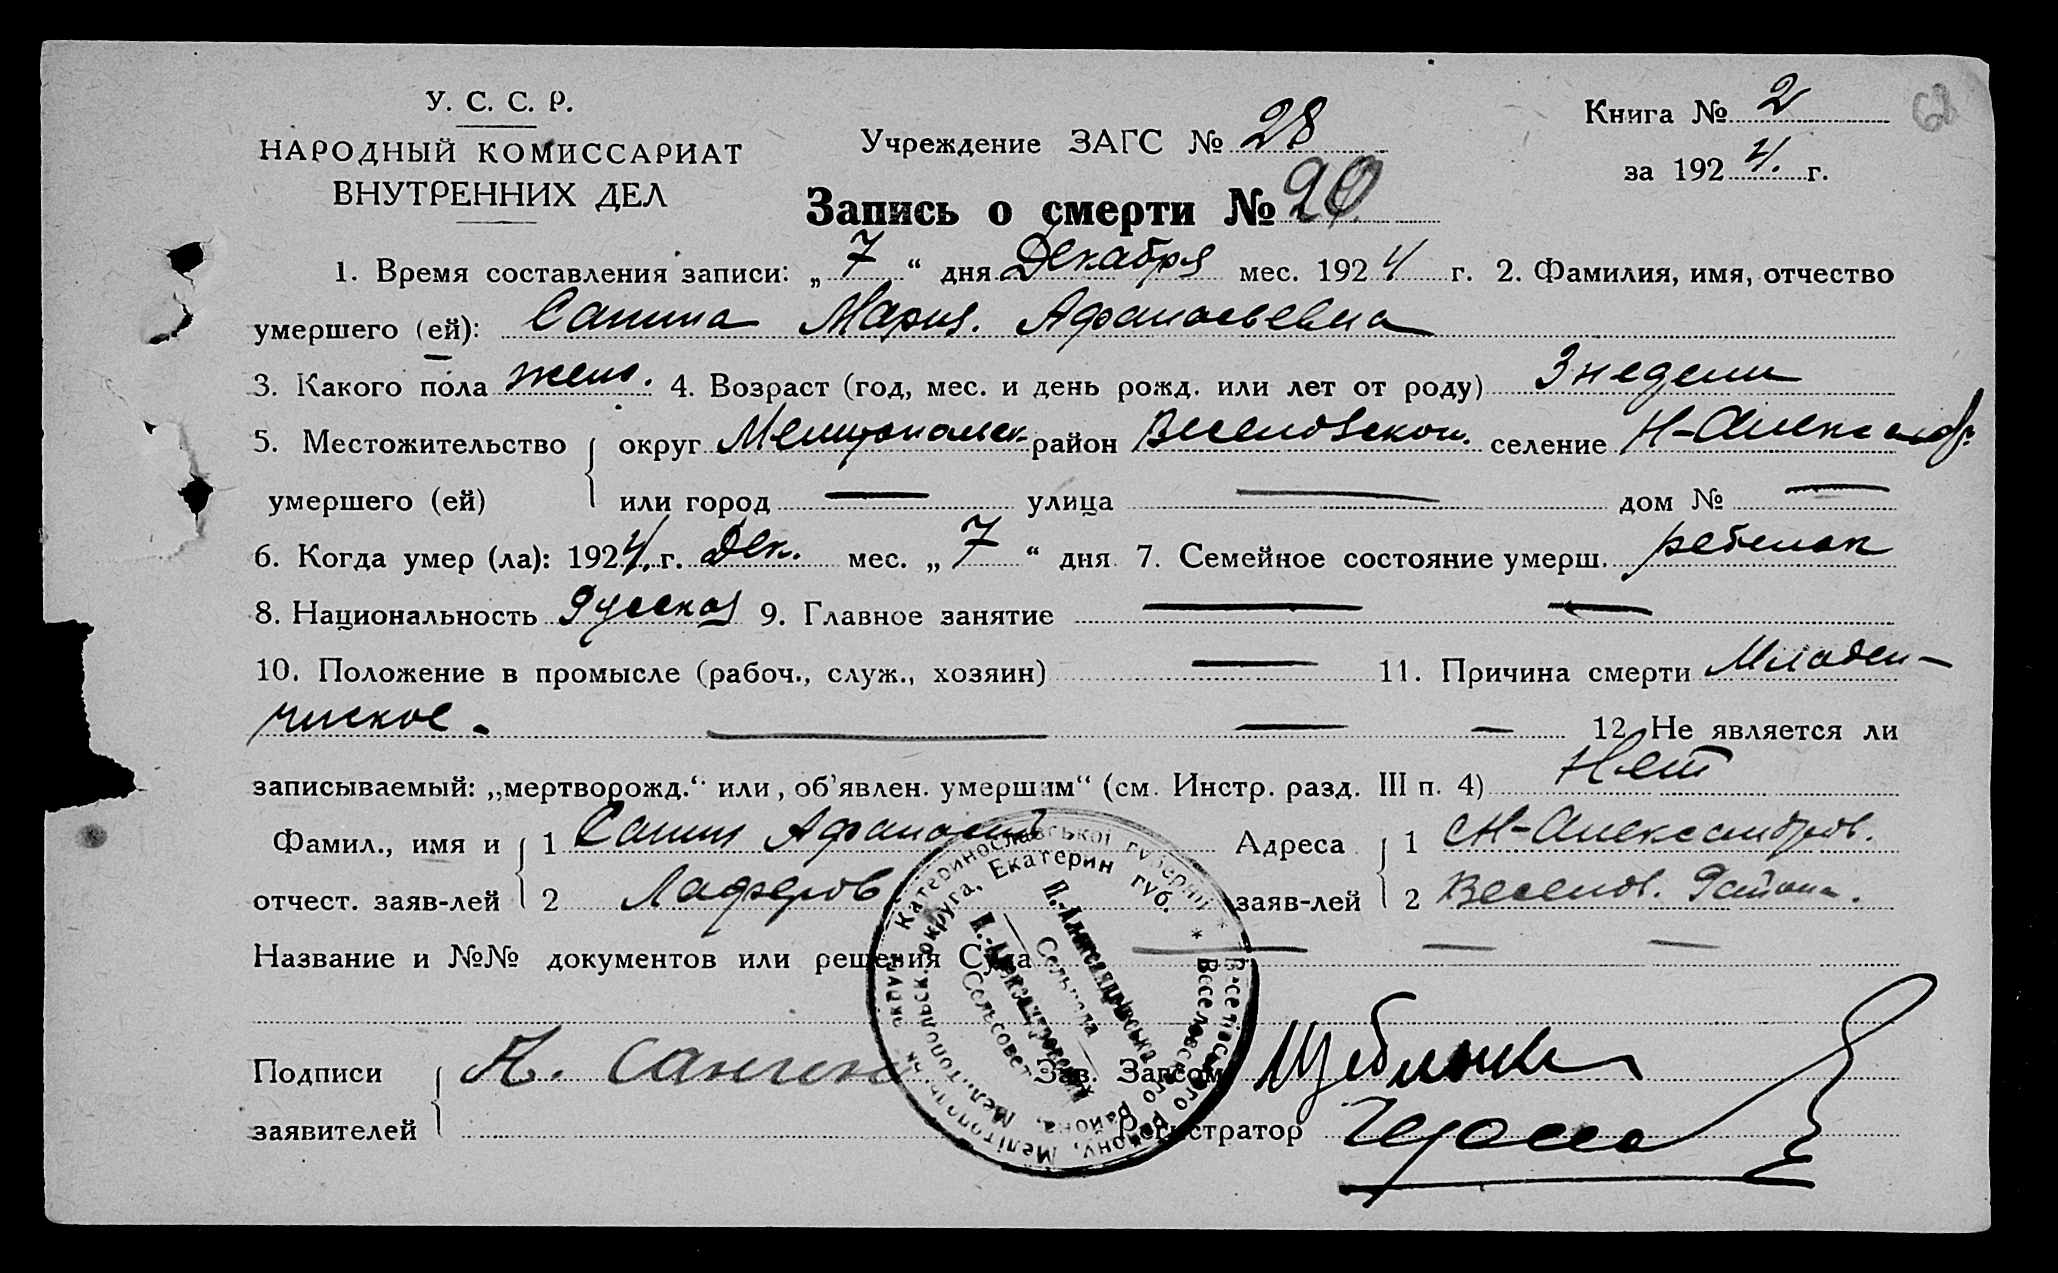 У. С. С. Р.
НАРОДНЫЙ КОМИССАРИАТ
ВНУТРЕННИХ ДЕЛ
Учреждение ЗАГС № 28
Книга № 2
за 1924. г.
62
Запись о смерти № 20
1. Время составления записи: „ 7 “ дня Декабря мес. 1924 г. 2. Фамилия, имя, отчество
умершего (ей): Санина Мария. Афанасьевна
3. Какого пола жен. 4. Возраст (год, мес. и день рожд. или лет от роду) 3 недели
5. Местожительство округ Мелитопольск. район Веселовском. селение Н-Александр.
умершего (ей) или город — улица — дом № —
6. Когда умер (ла): 1924. г. Дек. мес. „ 7 “ дня 7. Семейное состояние умерш. ребенок
8. Национальность Русская 9. Главное занятие — —
10. Положение в промысле (рабоч., служ., хозяин) — 11. Причина смерти Младен-
ческое. — — — 12. Не является ли
записываемый: „мертворожд.“ или „об'явлен. умершим“ (см. Инстр. разд. III п. 4) Нет
Фамил., имя и 1 Санин Афанасий Адреса 1 Н-Александров.
отчест. заяв-лей 2 заяв-лей 2 Веселов. Района.
Название и №№ документов или решения Суда — — —
Подписи А. Санин Зав. Загсом
заявителей Регистратор
Веселівського Району, Мелітопольськ. округи Катеринославської губернії *
Веселовского Района, Мелитопольск. округа, Екатерин губ. *
Н.-Александрівська
Сельрада
Н.-Александровский
Сельсовет